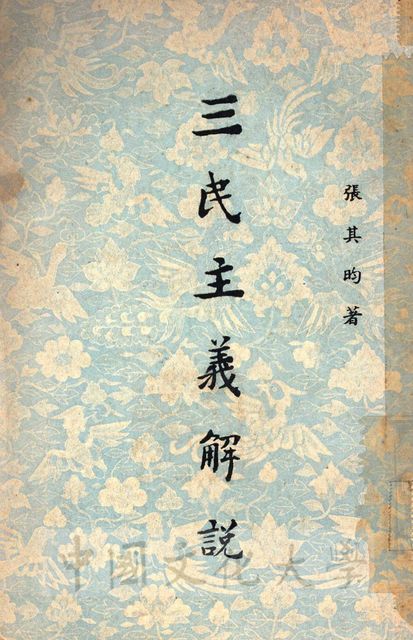 張其昀著
三民主義解說
中國文化大學